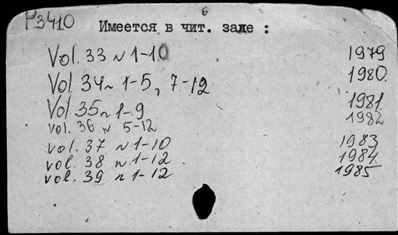 P3410
6
Имеется в чит. зале :
Vol. 33 N 1-10 1979
Vol. 34 N 1-5, 7-12 1980
Vol 35 N 1-9 1981
vol. 36 N 5-12 1982
vol. 37 N 1-10 1983
vol. 38 N 1-12 1984
vol. 39 N 1-12 1985